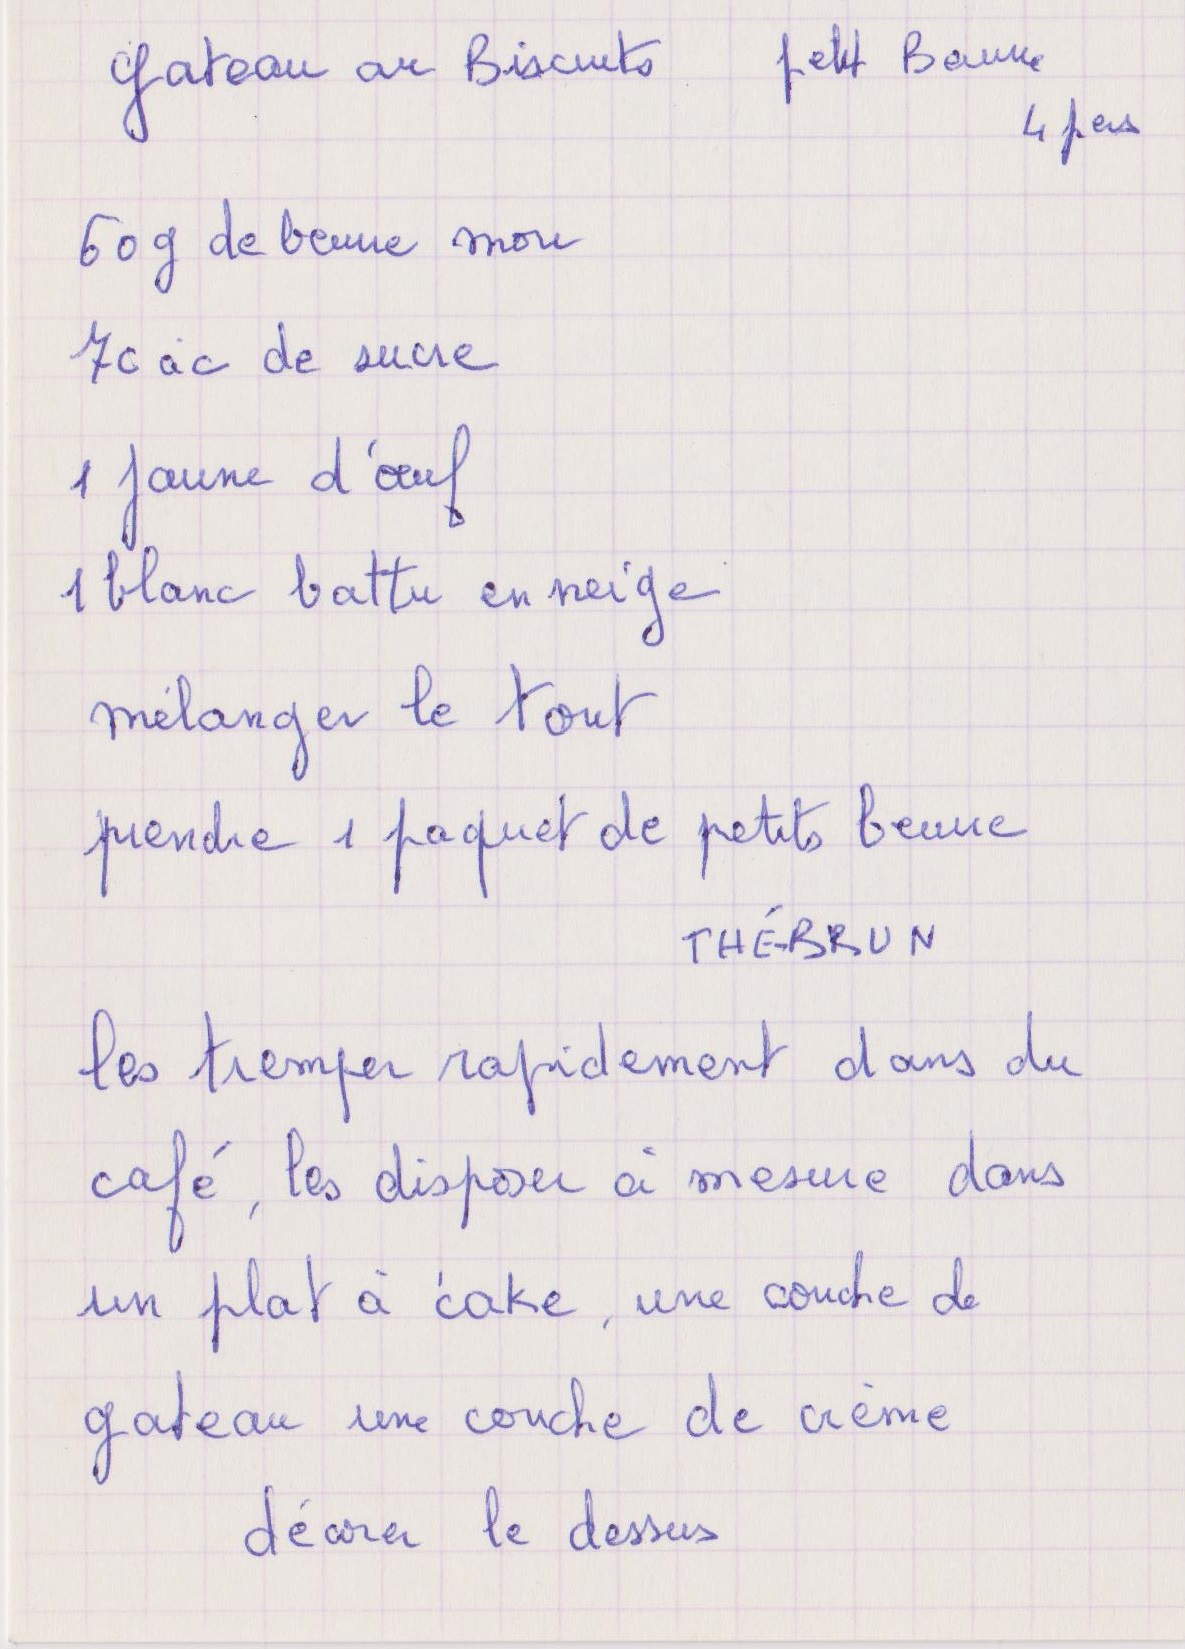 Gateau au Biscuits petit Beurre
4 pers
60g de beurre mou
7c à c de sucre
1 jaune d'œuf
1 blanc battu en neige
mélanger le tout
prendre 1 paquet de petits beurre
THÉ-BRUN
les tremper rapidement dans du
café, les disposer à mesure dans
un plat à cake, une couche de
gateau une couche de crème
décorer le dessus